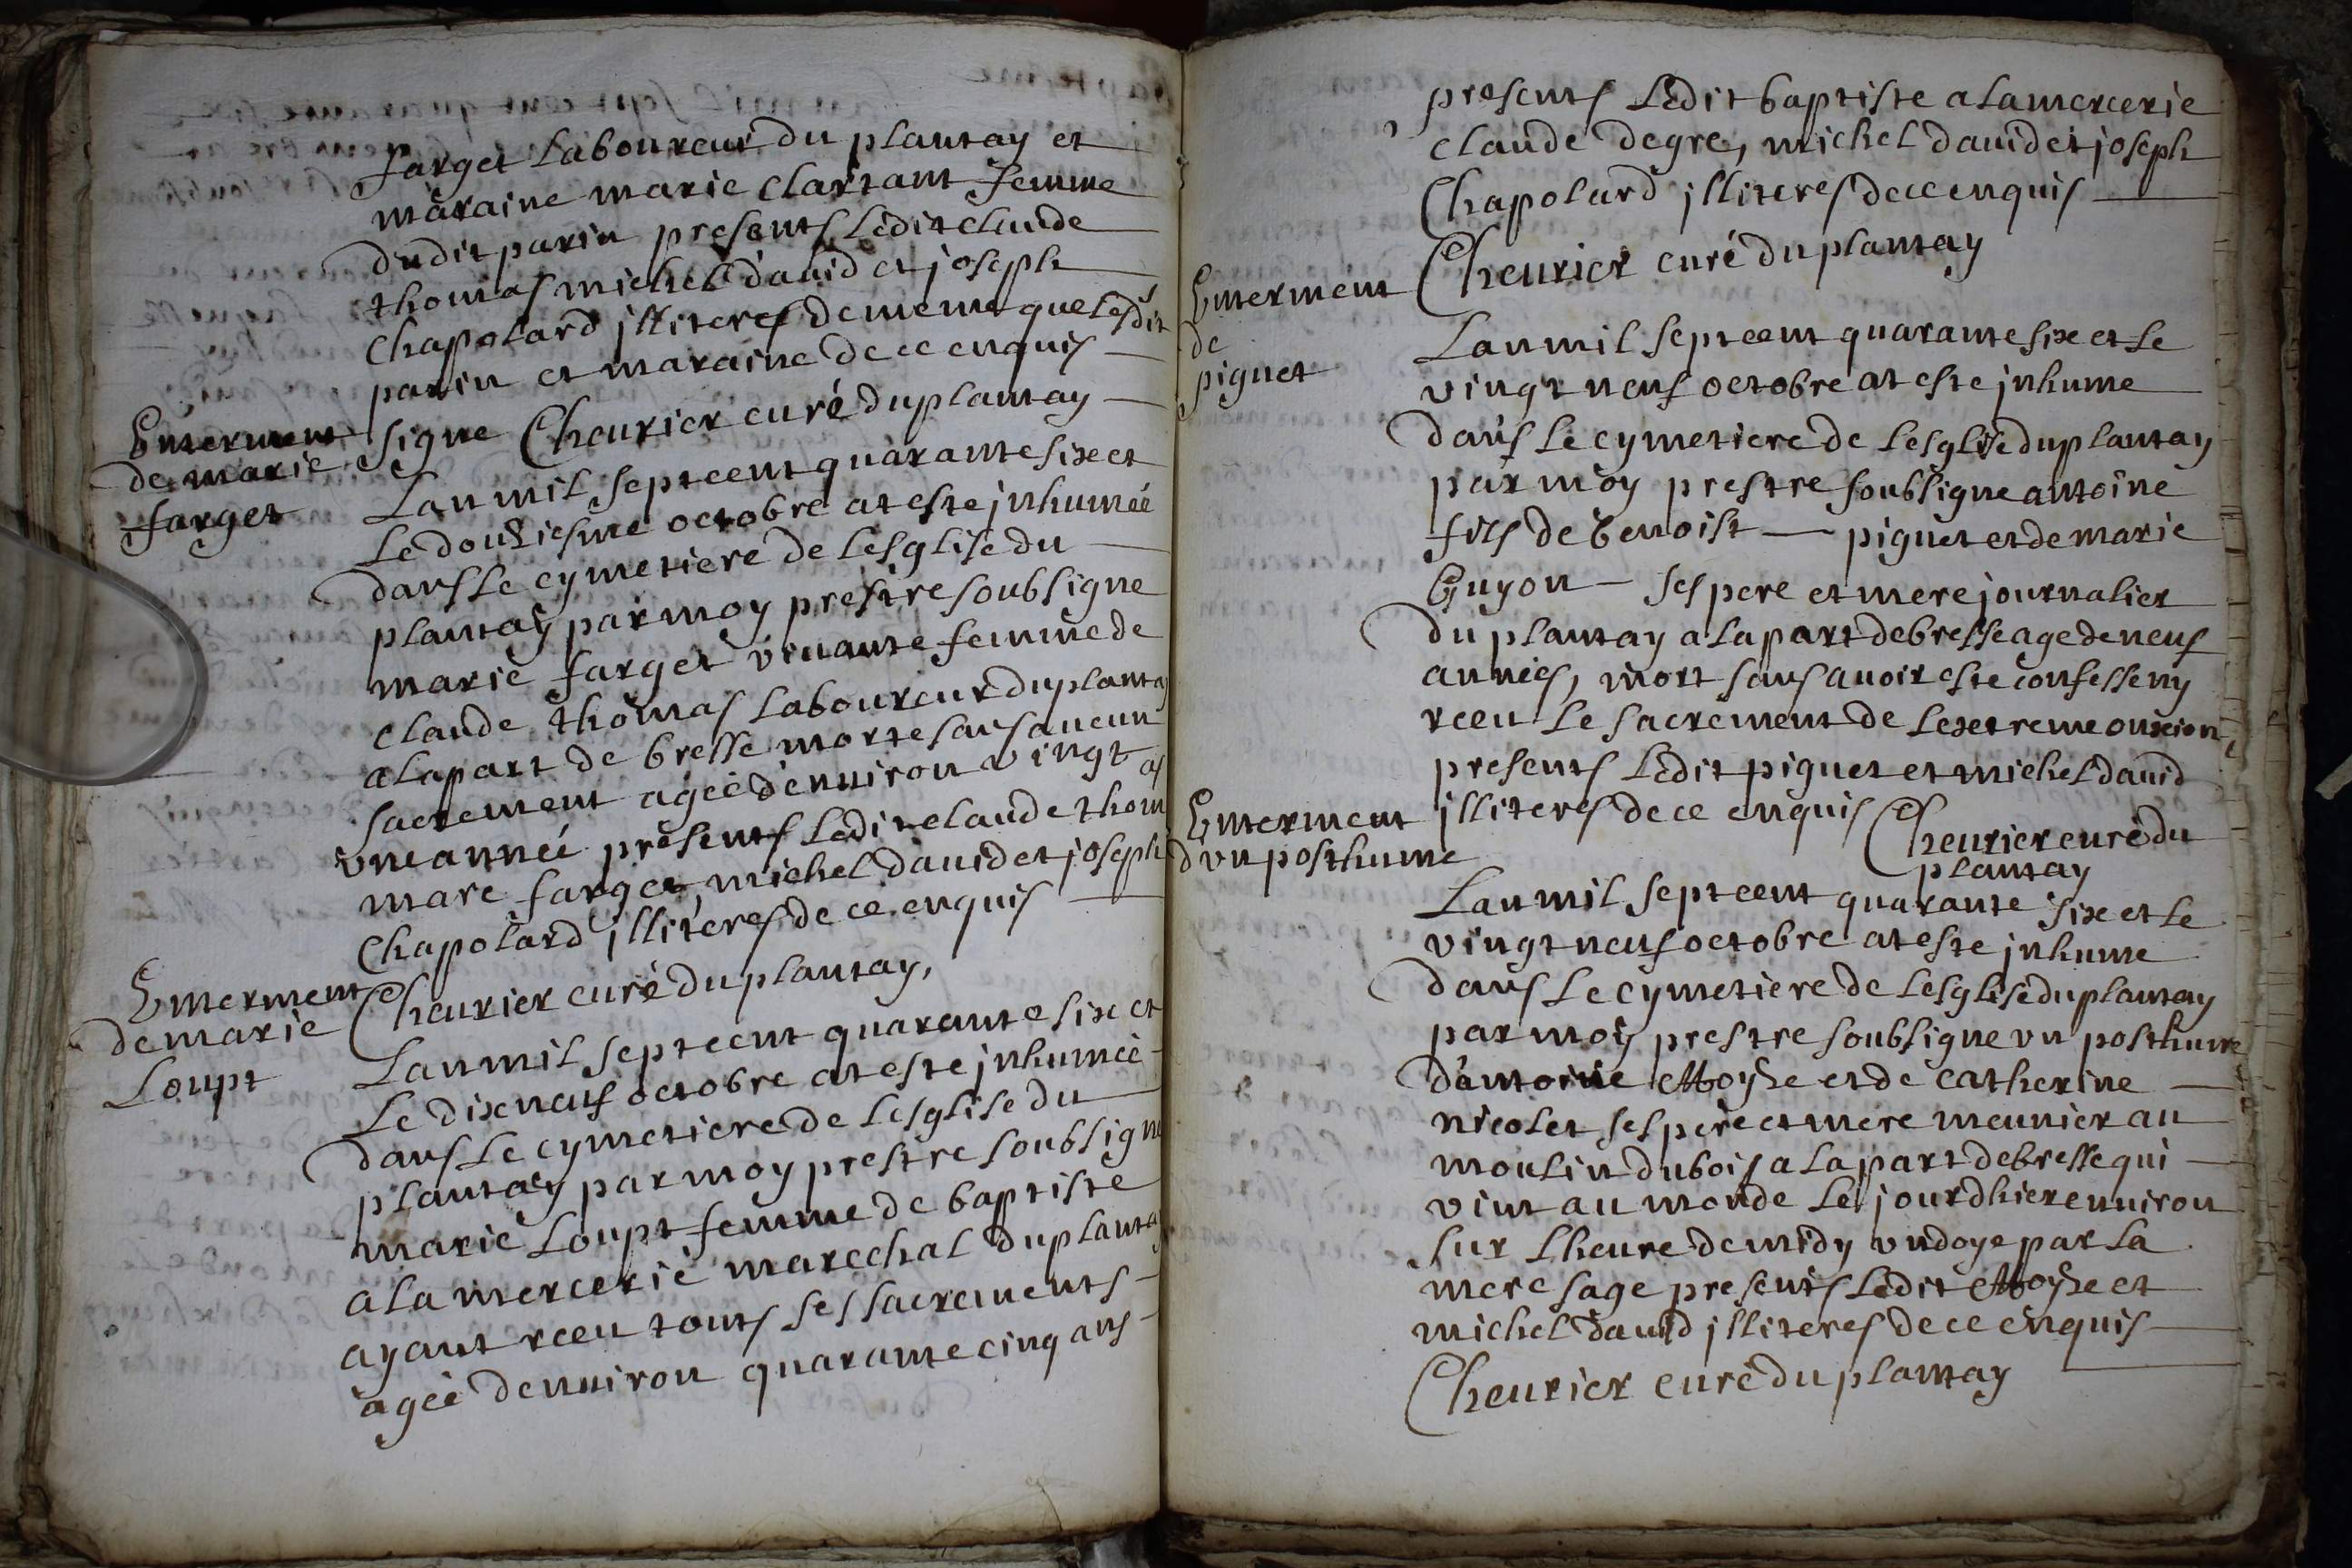 farget laboureur du plantay et
maraine marie Clartant femme
dudit parin presents ledit claude
thomas michel dauid et joseph
Chapolard jlliteres de meme que lesdit
parin et maraine de ce enquis
signe Cheurier curé du plantay
Enterment
de marie
farget
Lan mil sept cent quarante sixe et
le douziesme octobre at este jnhumée
dans le cymetiere de lesglise du
plantay par moy prestre soubsigne
marie farget viuante femme de
claude thomas laboureur du plantay
a la part de bresse morte sans aucun
sacrement agée denuiron vingt
vne année presents ledit claude thomas
marc farget, michel dauid et joseph
Chapolard jlliteres de ce enquis
Cheurier curé du plantay,
Enterment
de marie
Loupt
Lan mil sept cent quarante sixe et
le dixe neuf octobre at este jnhumée
dans le cymetiere de lesglise du
plantay par moy prestre soubsigne
marie Loupt femme de baptiste
alamercerie marechal du plantay
ayant rceu touts ses sacrements
agée denuiron quarante cinq ans
presents ledit baptiste alamercerie
claude degre, michel dauid et joseph
Chapolard jlliteres de ce enquis
Cheurier curé du plantay
Enterment
de
piguet
Lan mil sept cent quarante sixe et le
vingt neuf octobre at este jnhume
dans le cymetiere de lesglise du plantay
par moy prestre soubsigne antoine
fils de benoist piguet et de marie
Guyon ses pere et mere journalier
du plantay a la part de bresse age de neuf
annees, mort sans auoir este confesse ny
rceu le sacrement de lextreme onxion
presents ledit piguet et michel dauid
jlliteres de ce enquis Cheurier curé du
plantay
Enterment
dvn posthume
Lan mil sept cent quarante sixe et le
vingt neuf octobre at este jnhume
dans le cymetiere de lesglise du plantay
par moy prestre soubsigne vn posthume
dantoine Moyze et de catherine
nicolet ses pere et mere meunier au
moulin du bois a la part de bresse qui
vint au monde le jourdhier enuiron
sur lheure de midy vndoye par la
mere sage presents ledit Moyze et
michel dauid jlliteres de ce enquis
Cheurier curé du plantay